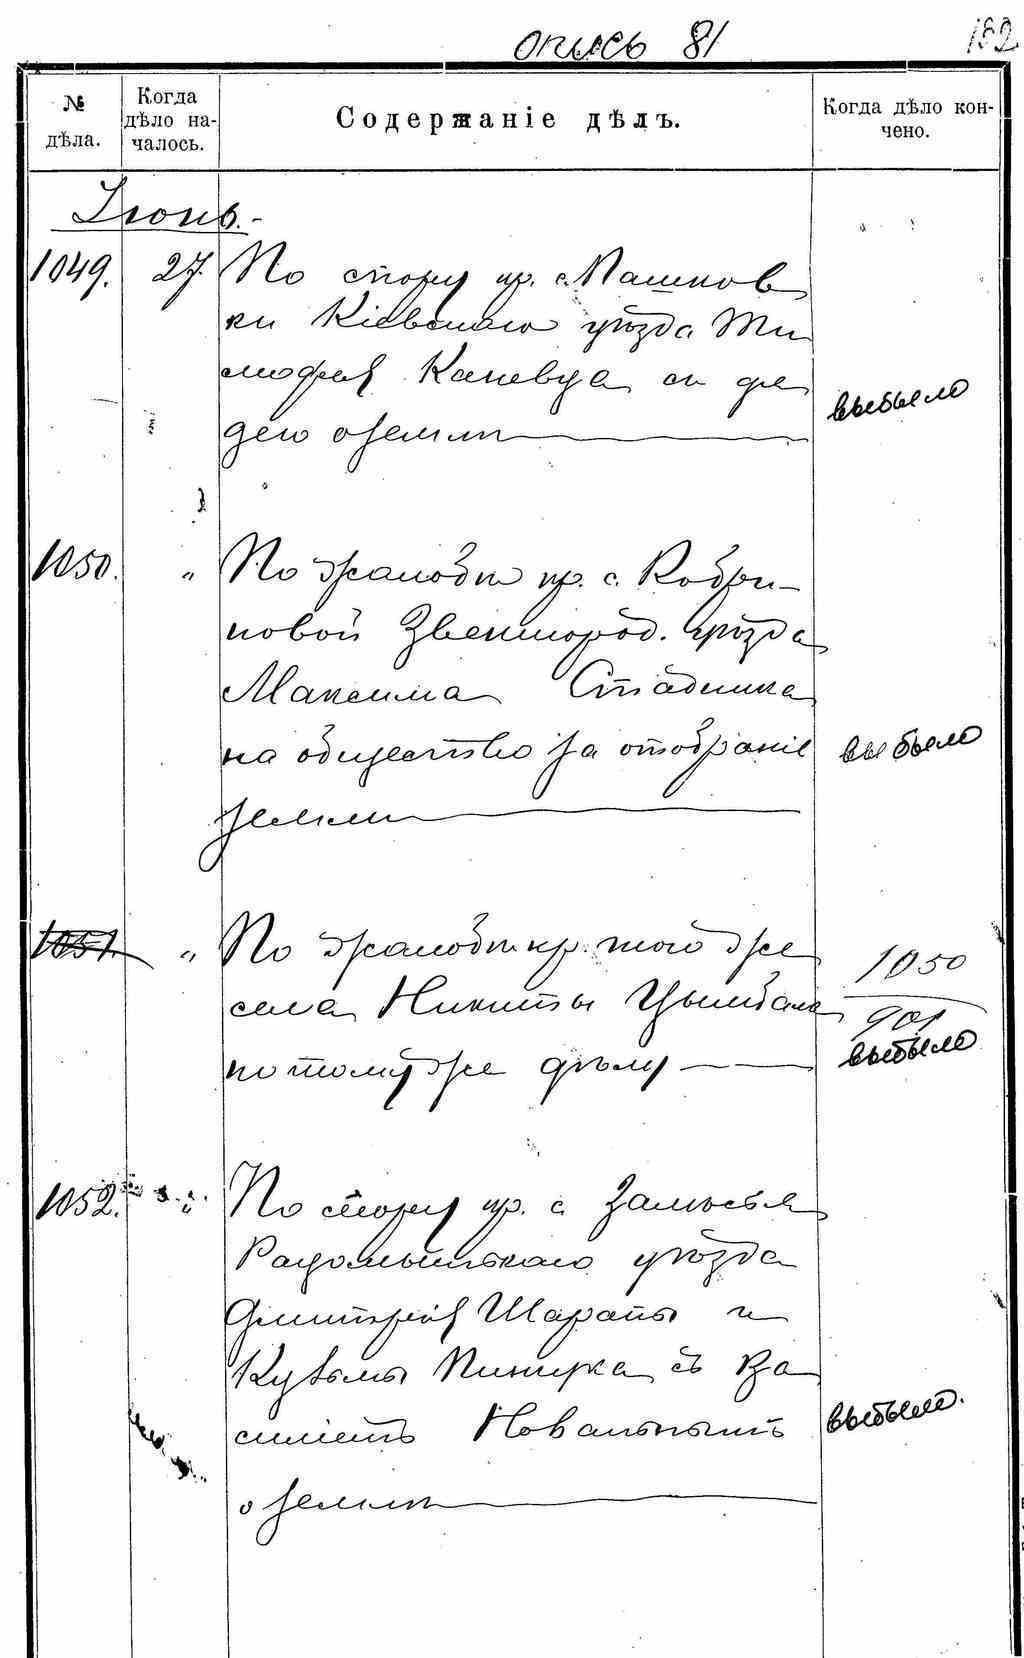 опись 81
182
№ дѣла.
Когда дѣло на-
чалось.
Содержаніе дѣлъ.
Когда дѣло кон-
чено.
Іюнь.-
1049. 27. По спору кр. с. Машков
ки Кіевскаго уѣзда Ти
мофея Каневца съ дя
дею о земли
выбыло
1050. " По жалобѣ кр. с. Кобри-
новой Звенигород. уѣзда
Максима Стадника
на общество за отобраніе
земли
выбыло
1051. " По жалобѣ кр. того же
села Никиты Цымбала
по тому же дѣлу
1050
901
выбыло
1052. " По спору кр. с. Замостья
Радомысльскаго уѣзда
Дмитрія Шарапы и
Кузьмы Пинчука съ Ва
силіемъ Ковальчукомъ
о земли
выбыло.